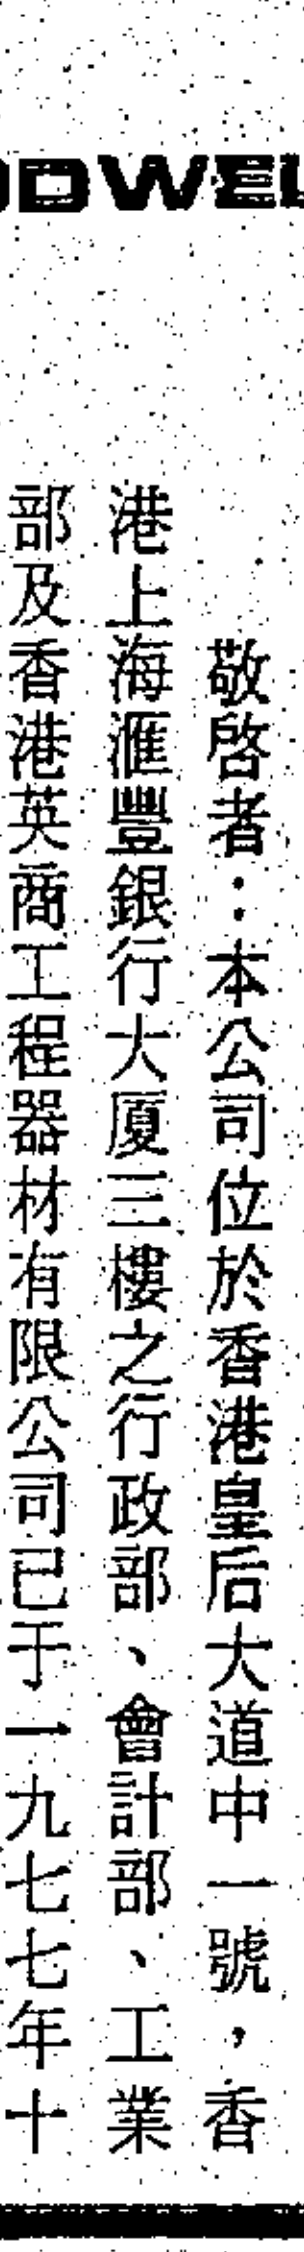 ODWEL
敬啓者：本公司位於香港皇后大道中一號，香
港上海滙豐銀行大厦三樓之行政部、會計部、工業
部及香港英商工程器材有限公司已于一九七七年十